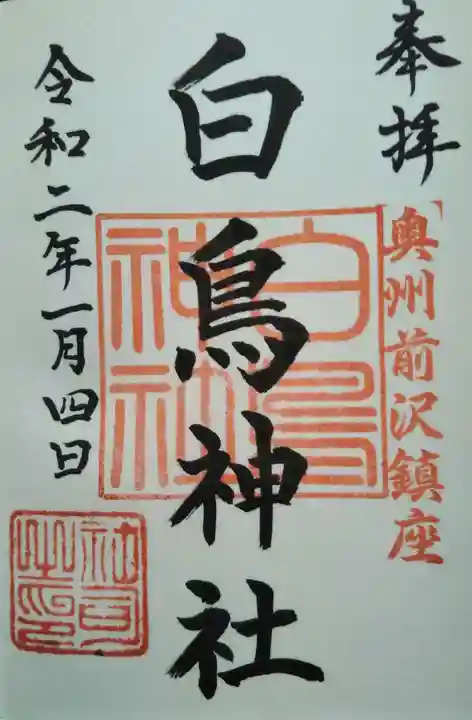 奉拝
奥州前沢鎮座
白鳥神社
白鳥
神社
令和二年一月四日
社司
之印